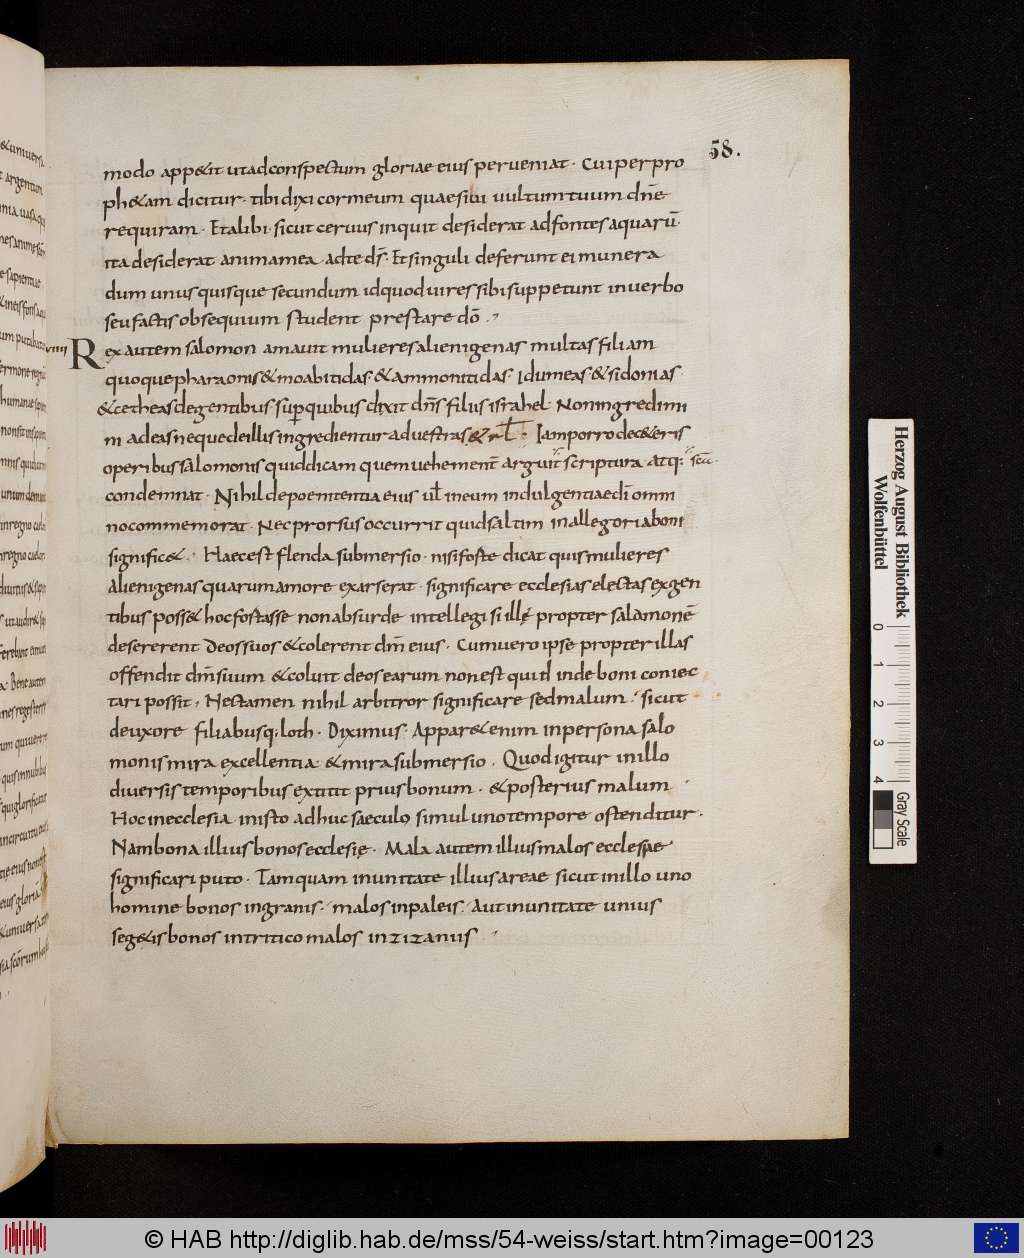 58.
modo app&it utad conspectum gloriae eius perueniat · Cui per pro
ph&am dicitur · tibi dixi cor meum quaesiui uultum tuum dnē
requiram · Et alibi · sicut ceruus inquit desiderat ad fontes aquarū ·
ita desiderat anima mea adte ds̄ · Et singuli deferunt ei munera
dum unus quisque secundum id quod uires sibi suppetunt in uerbo
seu factis obsequium student prestare dō ·,
viiii Rex autem salomon amauit mulieres alienigenas multas filiam
quoque pharaonis & moabitidas · & ammonitidas · Idumeas & sidonias ·
& cetheas de gentibus sup quibus dixit dns̄ filiis israhel · Non ingredimi
ni ad eas neque de illis ingredientur ad uestras & rl̄ · Iam porro de c&eris
operibus salomonis quid dicam quem uehement̄ arguit scriptura atq;
condemnat · Nihil de poenitentia eius ul̄ in eum indulgentia edī omni
no commemorat · Nec prorsus occurrit quid saltim in allegoria boni
signific& · Haec est flenda submersio · nisi foste dicat quis mulieres
alienigenas quarum amore exarserat · significare ecclesias electas ex gen
tibus poss& hoc fostasse non absurde intellegi si illę propter salamonē
desererent deos suos & colerent dm̄ eius · Cum uero ipse propter illas
offendit dm̄ suum & coluit deos earum non est quid inde boni coniec
tari possit · Nec tamen nihil arbitror significare sed malum · sicut
de uxore filiabusq; loth · Diximus · Appar& enim in persona salo
monis mira excellentia & mira submersio · Quod igitur in illo
diuersis temporibus extitit prius bonum · & posterius malum ·
Hoc in ecclesia in isto adhuc saeculo simul uno tempore ostenditur ·
Nam bona illius bonos ecclesię · Mala autem illius malos ecclesiae
significari puto · Tam quam in unitate illius areae sicut in illo uno
homine bonos in granis · malos in paleis · Aut in unitate unius
seg&is bonos in tritico malos in zizaniis ·,
Herzog August Bibliothek
Wolfenbüttel
0 1 2 3 4
Gray Scale
© HAB http://diglib.hab.de/mss/54-weiss/start.htm?image=00123